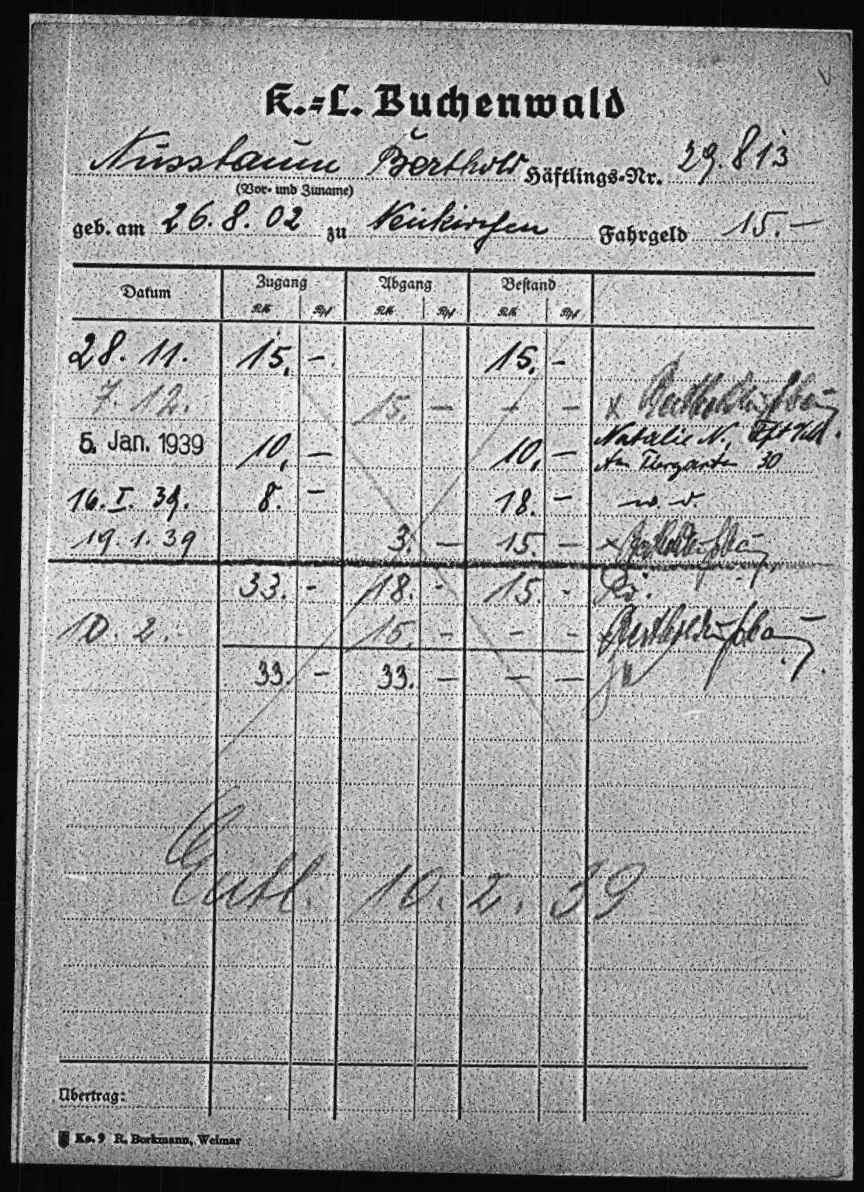 K.=L. Buchenwald
Nussbaum Berthold Häftlings-Nr. 29.813
(Vor- und Zuname)
geb. am 26.8.02 zu Neukirchen Fahrgeld 15.—
Datum Zugang Abgang Bestand
RM Rpf RM Rpf RM Rpf
28. 11. 15. — 15. —
7. 12. 15. — — — x Berthold Nußbaum
5. Jan. 1939 10. — 10. — Natalie N.,
Am Tiergarten 30
16. I. 39. 8. — 18. — w. v.
19. 1. 39 3. — 15. — x Berthold Nußbaum
33. - 18. - 15. -
10. 2. 15. - - - Berthold Nußbaum
33. — 33. — — —
Entl. 10. 2. 39
Übertrag:
Ko. 9 R. Borkmann, Weimar